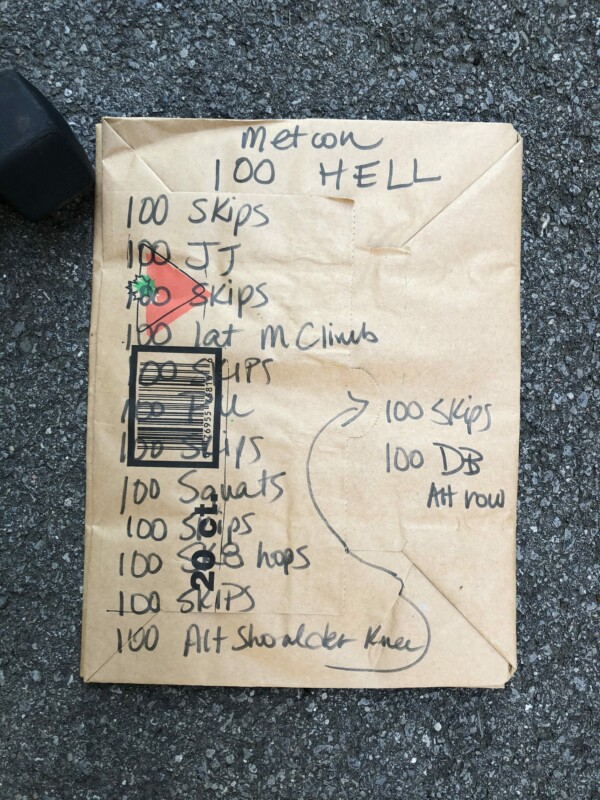 metcon
100 HELL
100 Skips
100 JJ
100 Skips
100 lat m Climb
100 Skips
100
100 Skips
100 Squats
100 Skips
100 hops
100 SKIPS
100 Alt Shoulder Knee
100 Skips
100 DB
Alt row
20 ct.